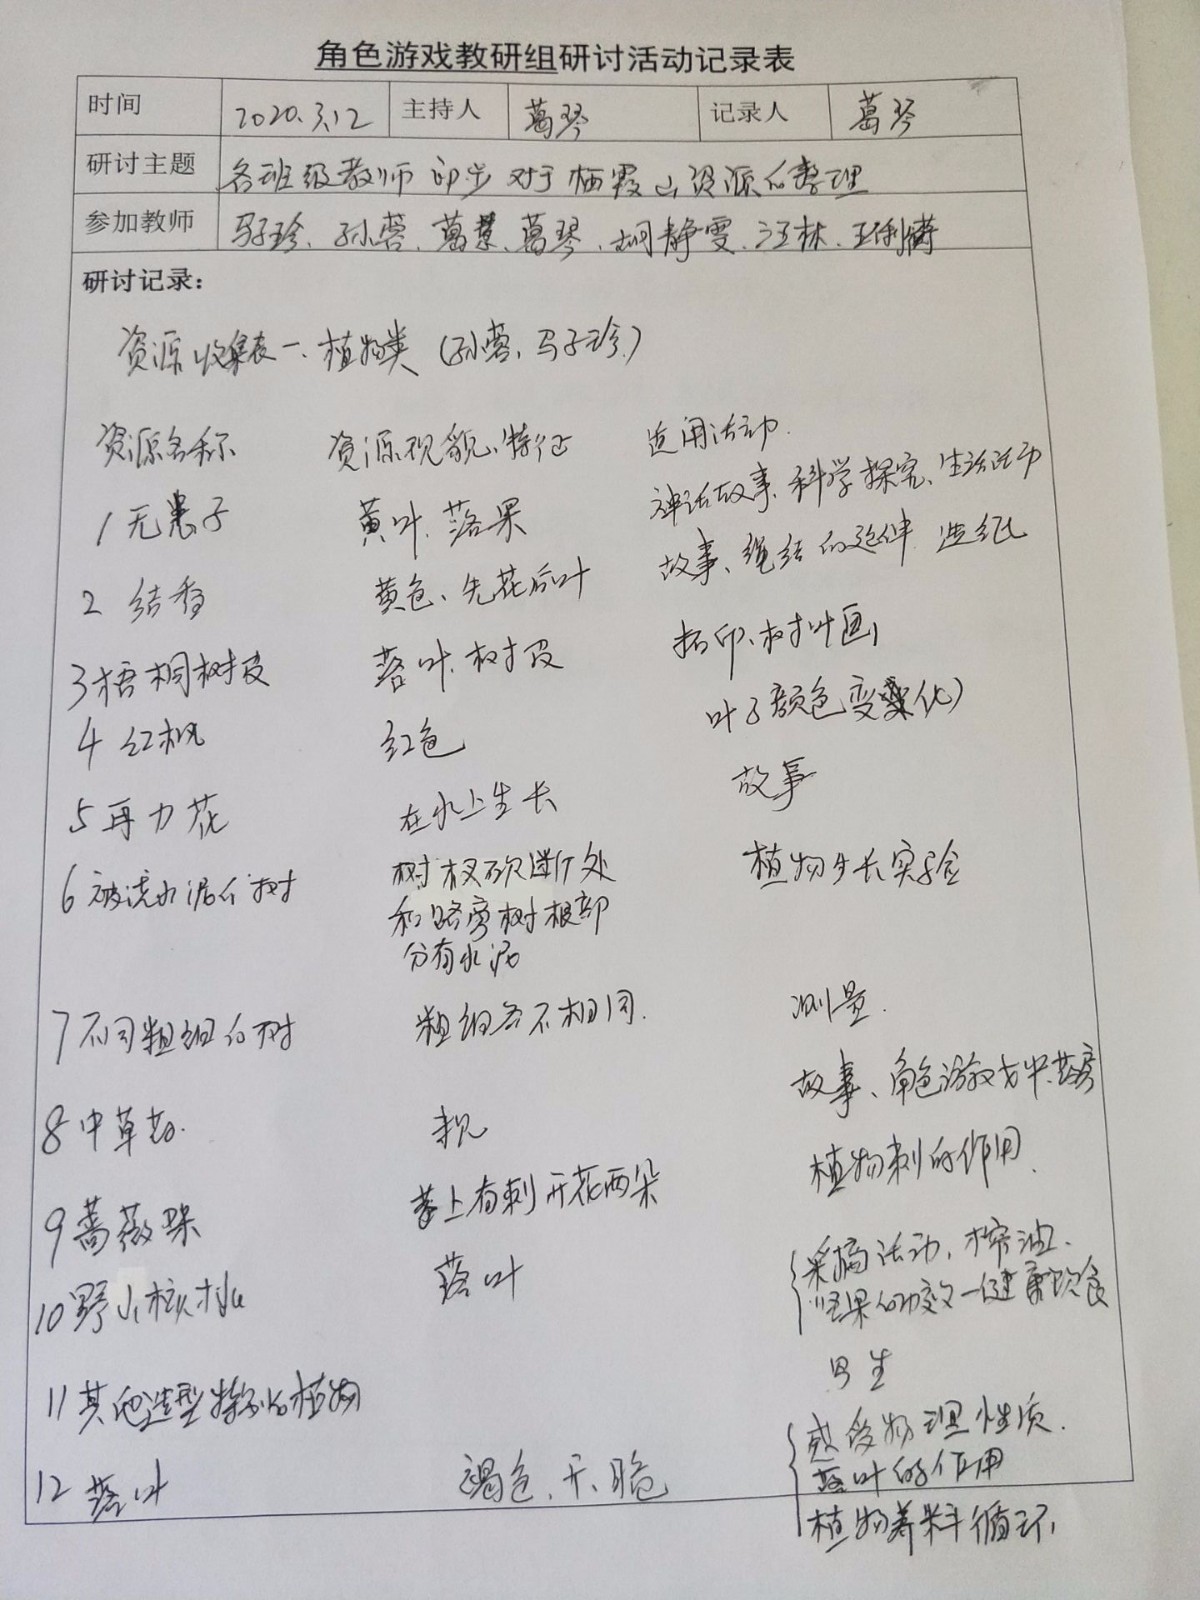 角色游戏教研组研讨活动记录表
时间 2020.3.12 主持人 葛琴 记录人 葛琴
研讨主题 各班级教师初步对于栖霞山资源的整理
参加教师 马子珍、孙蓉、葛景、葛琴、胡静雯、汪林、王俐
研讨记录：
资源收集表一、植物类（孙蓉、马子珍）
资源名称 资源现貌、特征 适用活动
1 无患子 黄叶、落果 神话故事、科学探究、生活活动
2 结香 黄色、先花后叶 故事、绳结的延伸 造纸
3 梧桐树皮 落叶、树皮 拓印、树叶画
4 红枫 红色 叶子颜色变化
5 再力花 在水上生长 故事
6 被浇水泥的树 树杈砍断处 植物生长实验
和路旁树根部
分有水泥
7 不同粗细的树 粗细各不相同. 测量.
8 中草药. 故事、角色游戏中药房
9 蔷薇 茎上有刺 开花两朵 植物刺的作用
10 野山核桃 落叶 采摘活动、榨油.
坚果的功效—健康饮食
11 其他造型特别的植物 写生
12 落叶 褐色、干、脆 感受物理性质.
落叶的作用
植物养料循环.